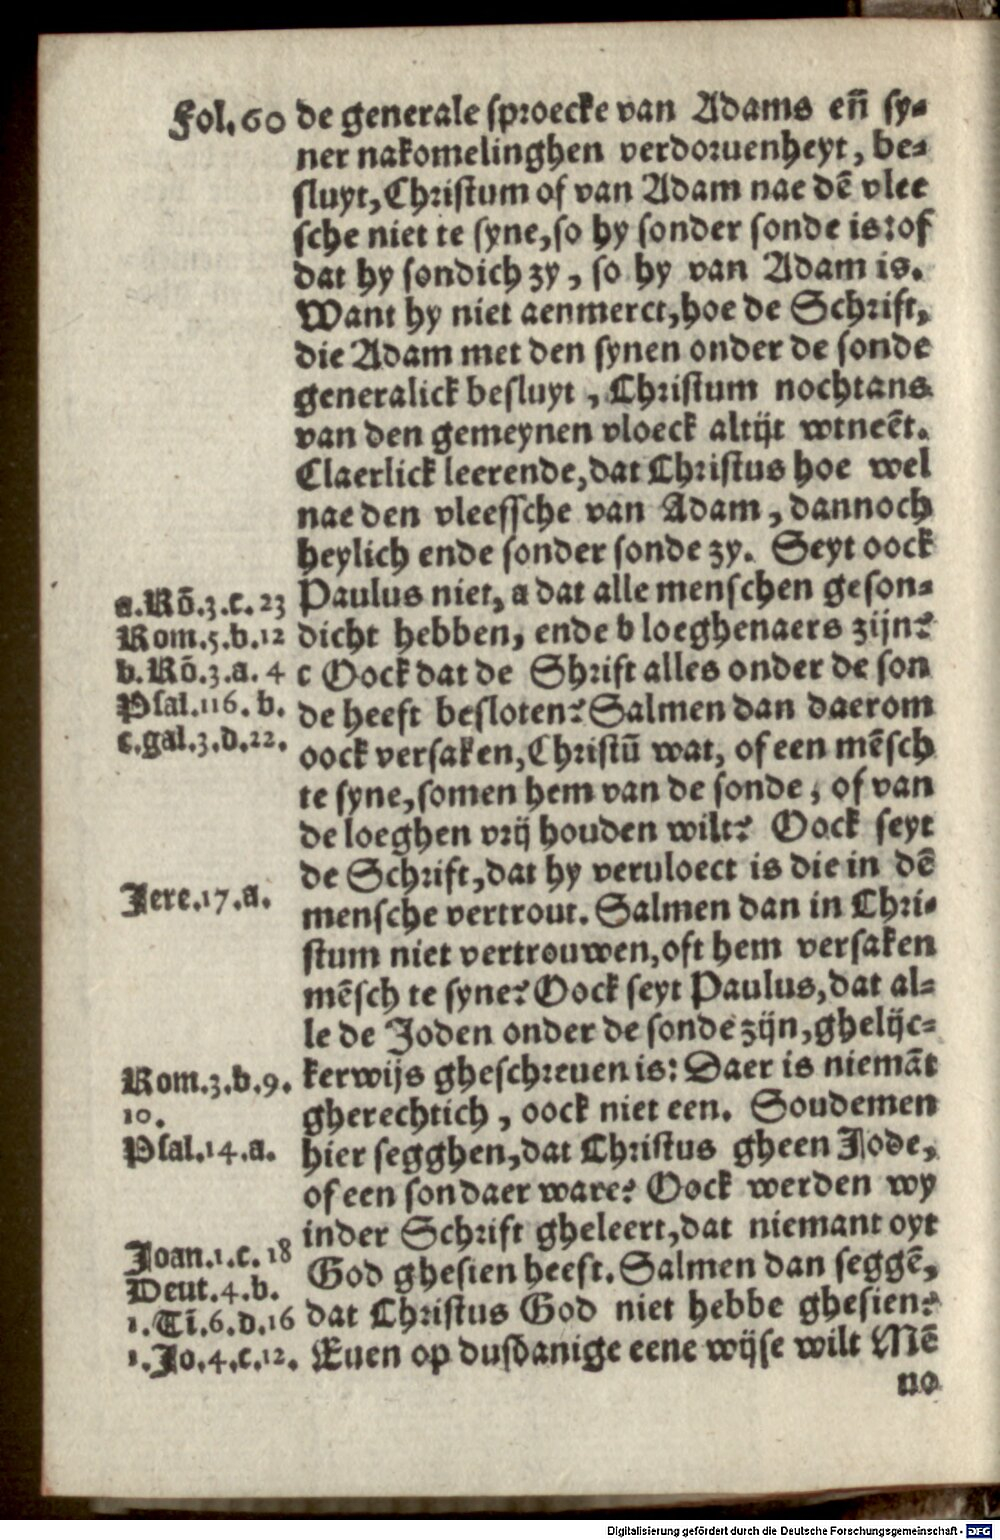 Fol.60 de generale sproecke van Adams eñ sy-
ner nakomelinghen verdoruenheyt, be-
sluyt, Christum of van Adam nae dē vlee
sche niet te syne, so hy sonder sonde is: of
dat hy sondich zy, so hy van Adam is.
Want hy niet aenmerct, hoe de Schrift,
die Adam met den synen onder de sonde
generalick besluyt, Christum nochtans
van den gemeynen vloeck altijt wtneēt.
Claerlick leerende, dat Christus hoe wel
nae den vleessche van Adam, dannoch
heylich ende sonder sonde zy. Seyt oock
a.Rō.3.c.23 Paulus niet, a dat alle menschen geson-
Rom.5.b.12 dicht hebben, ende b loeghenaers zijn?
b.Rō.3.a.4 c Oock dat de Shrift alles onder de son
Psal.116.b. de heeft besloten? Salmen dan daerom
c.gal.3.d.22. oock versaken, Christū wat, of een mēsch
te syne, somen hem van de sonde, of van
de loeghen vrij houden wilt? Oock seyt
de Schrift, dat hy veruloect is die in dē
Jere.17.a. mensche vertrout. Salmen dan in Chri-
stum niet vertrouwen, oft hem versaken
mēsch te syne? Oock seyt Paulus, dat al-
le de Joden onder de sonde zijn, ghelijc-
Rom.3.b.9. kerwijs gheschreuen is: Daer is niemāt
10. gherechtich, oock niet een. Soudemen
Psal.14.a. hier segghen, dat Christus gheen Jode,
of een sondaer ware? Oock werden wy
inder Schrift gheleert, dat niemant oyt
Joan.1.c.18 God ghesien heeft. Salmen dan seggē,
Deut.4.b.
1.Ti.6.d.16 dat Christus God niet hebbe ghesien?
1.Jo.4.c.12. Euen op dusdanige eene wijse wilt Mē
no
Digitalisierung gefördert durch die Deutsche Forschungsgemeinschaft - DFG